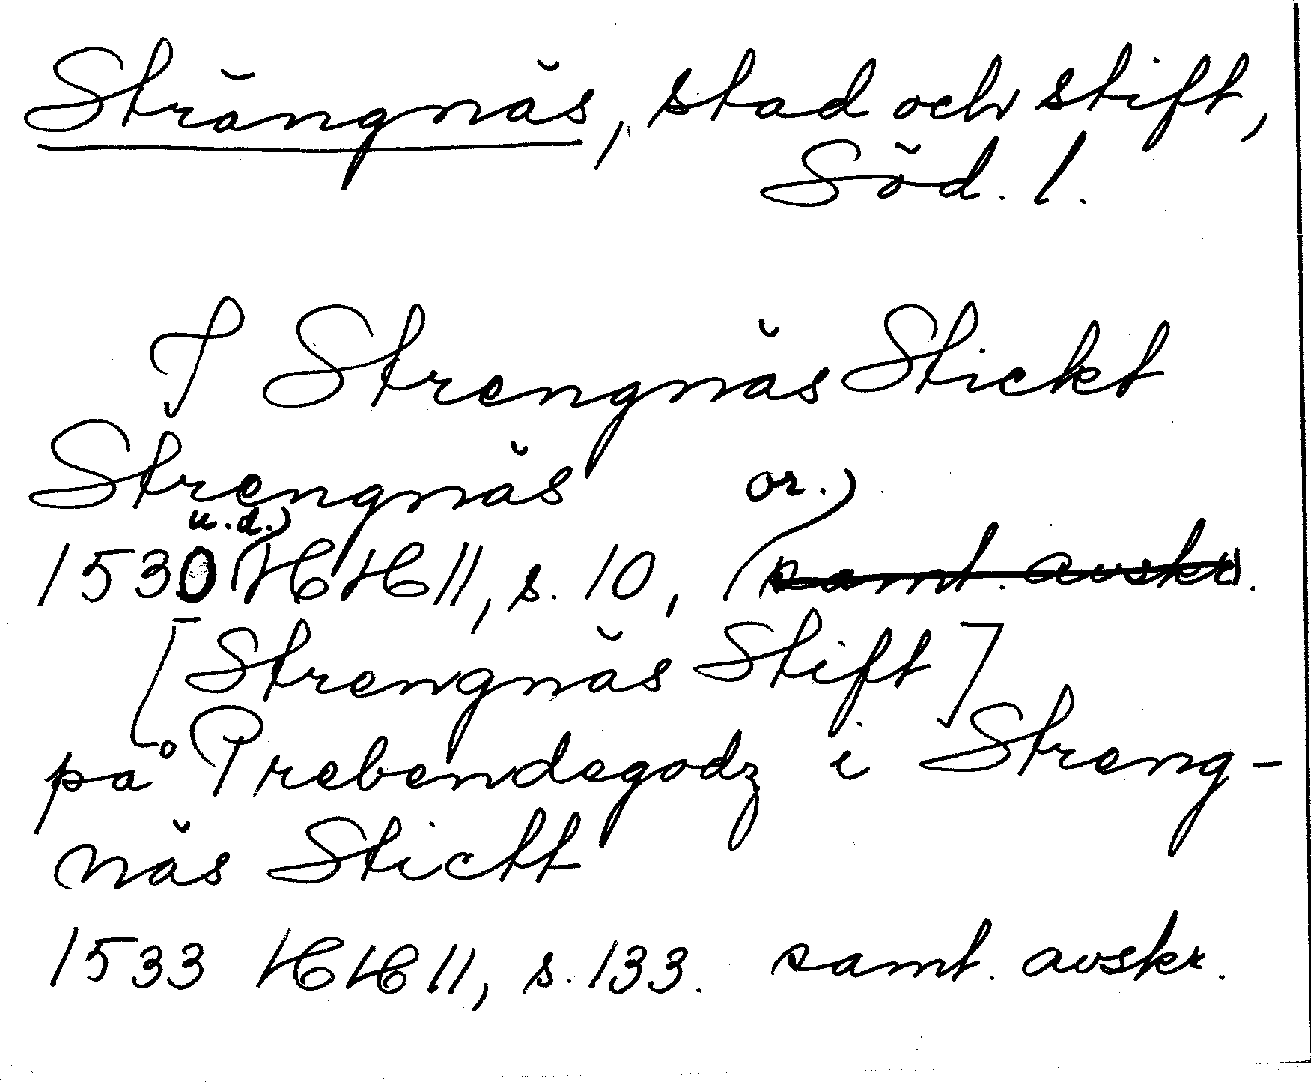 Strängnäs, stad och stift,
Söd. l.
I Strengnäs Stickt
Strengnäs or.)
u.d.)
1530 HH 11, s. 10, samt. avskr.
[Strengnäs Stift]
på Prebendegodz i Streng-
näs Sticht
1533 HH 11, s. 133. samt. avskr.